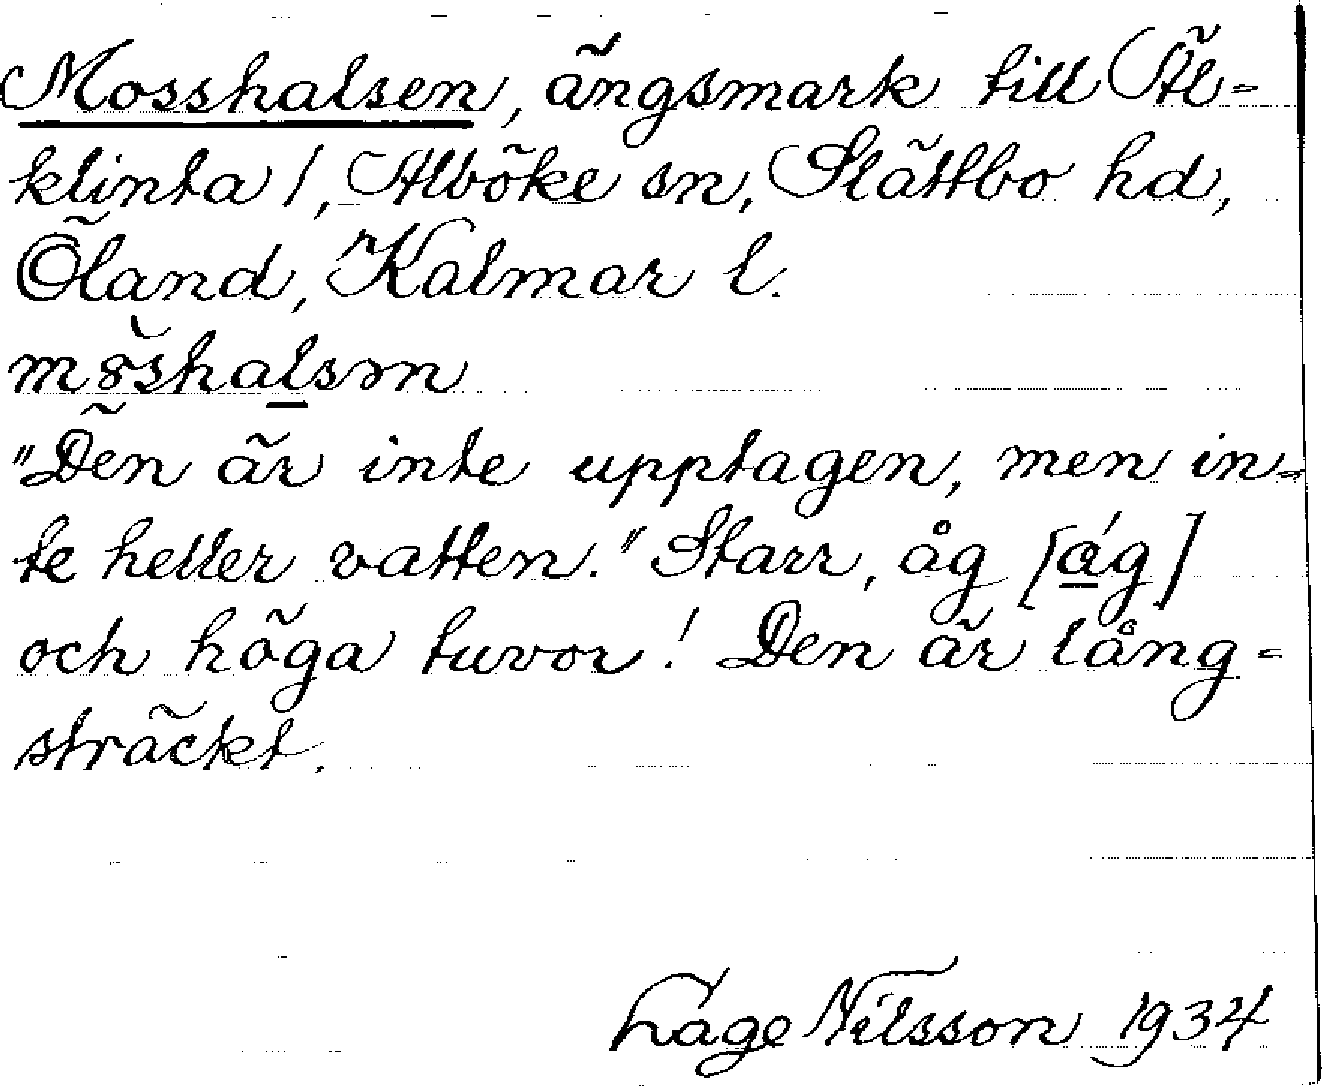 Mosshalsen, ängsmark till Äl-
klinta 1, Alböke sn, Slättbo hd,
Öland, Kalmar l.
möshalsən
"Den är inte upptagen, men in-
te heller vatten." Starr, åg [ág]
och höga tuvor! Den är lång-
sträckt.
Lage Nilsson 1934